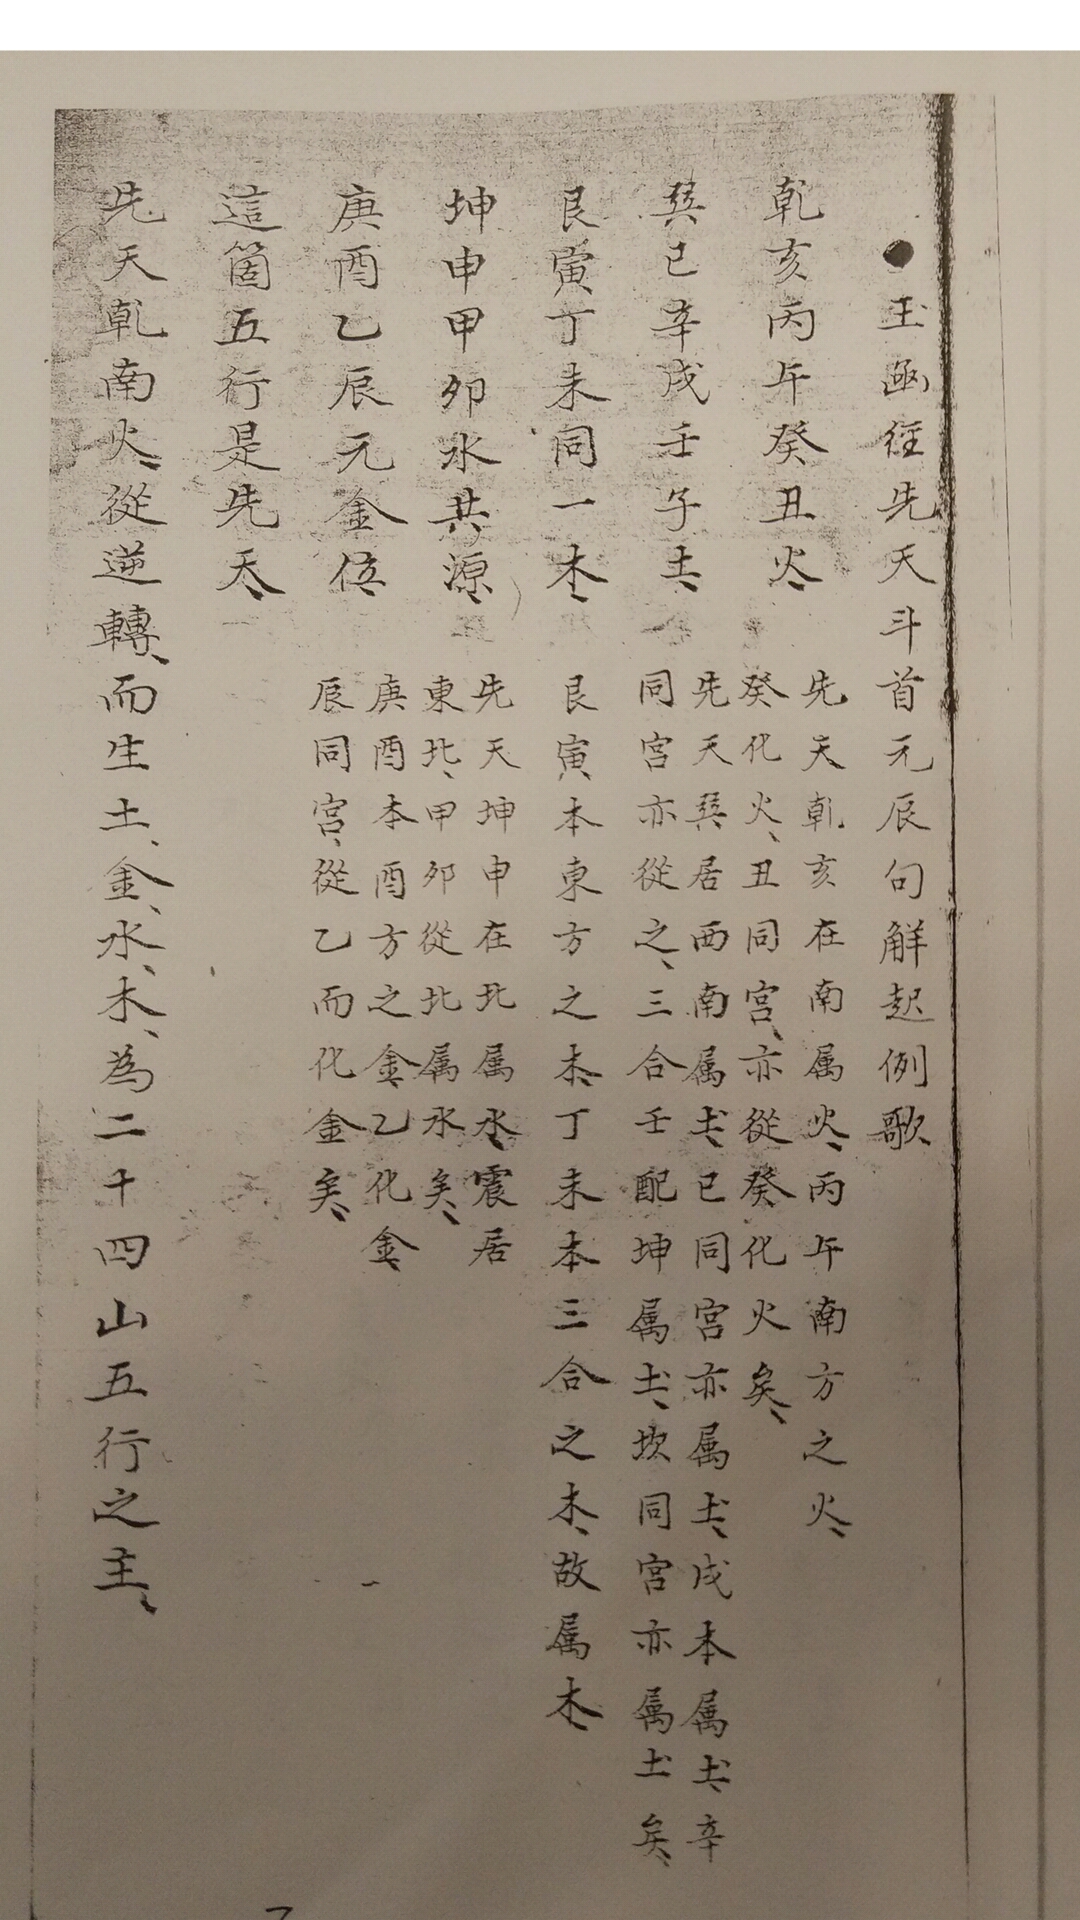 ●玉函經先天斗首元辰句解起例歌
乾亥丙午癸丑火、
先天乾亥在南属火、丙午南方之火、
癸化火、丑同宫、亦從癸化火矣、
巽巳辛戌壬子土、
先天巽居西南属土、巳同宫亦属土、戌本属土、辛
同宫亦從之、三合壬配坤属土、坎同宫亦属土矣、
艮寅丁未同一木、
艮寅本東方之木、丁未本三合之木、故属木、
坤申甲卯水共源、
先天坤申在北属水、震居
東北、甲卯從北属水矣、
庚酉乙辰元金位、
庚酉本酉方之金、乙化金、
辰同宫、從乙而化金矣、
這箇五行是先天、
先天乾南火、從逆轉、而生土、金、水、木、為二十四山五行之主、